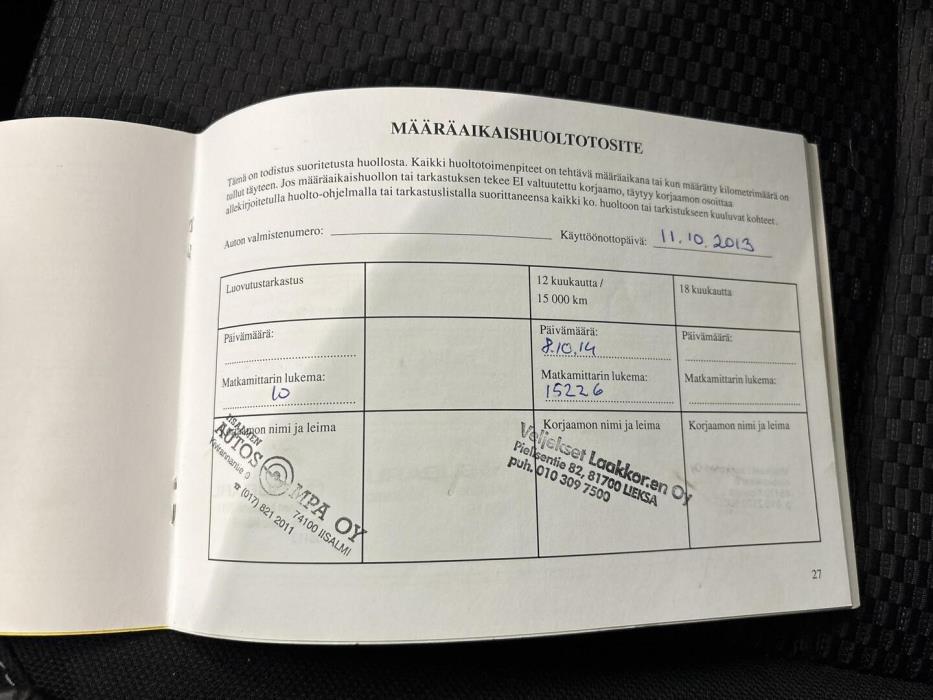 MÄÄRÄAIKAISHUOLTOTOSITE
Tämä on todistus suoritetusta huollosta. Kaikki huoltotoimenpiteet on tehtävä määräaikana tai kun määrätty kilometrimäärä on
tullut täyteen. Jos määräaikaishuollon tai tarkastuksen tekee EI valtuutettu korjaamo, täytyy korjaamon osoittaa
allekirjoitetulla huolto-ohjelmalla tai tarkastuslistalla suorittaneensa kaikki ko. huoltoon tai tarkistukseen kuuluvat kohteet.
Auton valmistenumero: Käyttöönottopäivä: 11.10.2013
Luovutustarkastus
12 kuukautta /
15 000 km
18 kuukautta
Päivämäärä:
Päivämäärä:
8.10.14
Päivämäärä:
Matkamittarin lukema:
10
Matkamittarin lukema:
15226
Matkamittarin lukema:
nimi ja leima
IISALMEN
AUTOSOMPA OY
74100 IISALMI
☎ (017) 821 2011
Korjaamon nimi ja leima
Veljekset Laakkonen Oy
Pielisentie 82, 81700 LIEKSA
puh. 010 309 7500
Korjaamon nimi ja leima
27